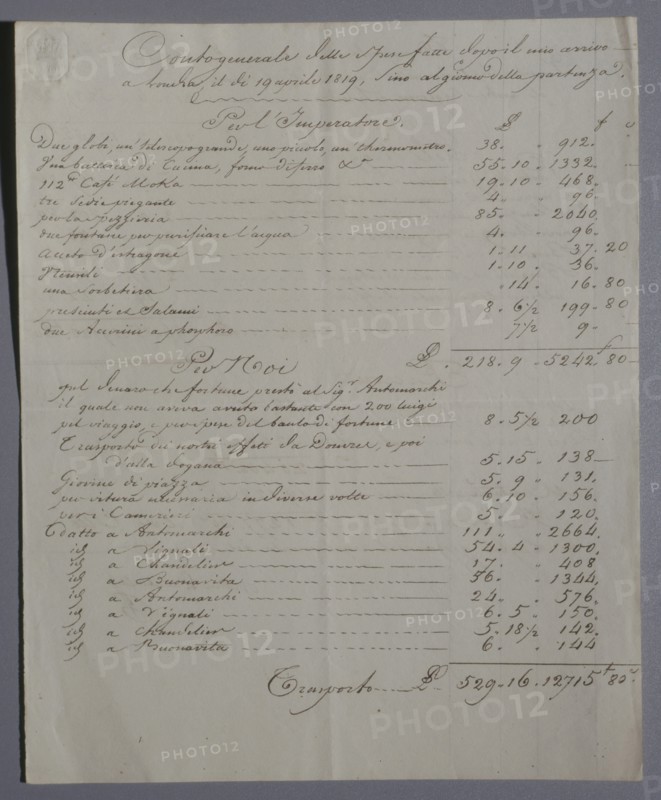 Conto generale delle spese fatte dopo il mio arrivo
a Londra, il dì 19 aprile 1819, sino al giorno della partenza.
Per l'Imperatore. £ f c
Due globi, un telescopo grande, uno piccolo, un thermometro. 38. " 912.
Una batteria di Cucina, forno di ferro &c 55. 10. 1332.
112 Café Moka 19. 10. 468.
tre Sedie piegante 4. " 96.
85. " 2040.
due fontane per purificare l'acqua 4. " 96.
Aceto d'estragone 1. 11. 37. 20
1. 10. 36.
una Sorbetiera " 14. 16. 80
presciuti et Salami 8. 6½ 199. 80
due a phosphoro 7½ 9.
£. 218. 9. 5242. 80
Per Noi
quel denaro che fortune prestò al Sigr. Antomarchi
il quale non aveva avuto bastante con 200 luigi
pel viaggio, e per spese del baulo di fortune 8. 5½ 200
Trasporto dei nostri effeti da Douvre, e poi
dalla dogana 5. 15. 138
Giovine di piazza 5. 9. 131.
per vitura necessaria in diverse volte 6. 10. 156.
per i Camerieri 5. " 120.
datto a Antomarchi 111. " 2664.
id a Vignali 54. 4. 1300.
id a Chandelier 17. " 408
id a Buonavita 56. " 1344.
id a Antomarchi 24. " 576.
id a Vignali 6. 5. 150.
id a Chandelier 5. 18½ 142.
id a Buonavita 6. " 144
Trasporto £. 529. 16. 12715 f 80 c
PHOTO12